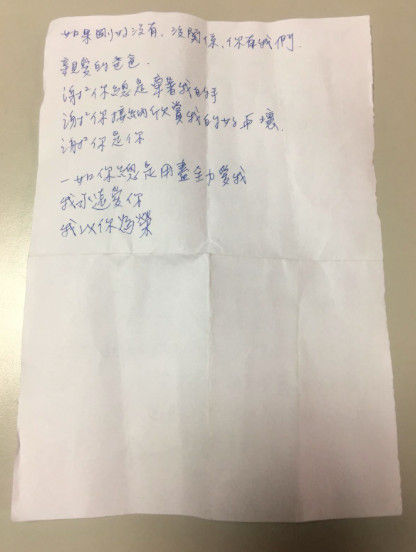 如果剛好沒有，沒關係，你有我們．
親愛的爸爸．
謝謝你總是牽著我的手
謝謝你接納欣賞我的好與壞．
謝謝你是你
一如你總是用盡全力愛我
我永遠愛你
我以你為榮